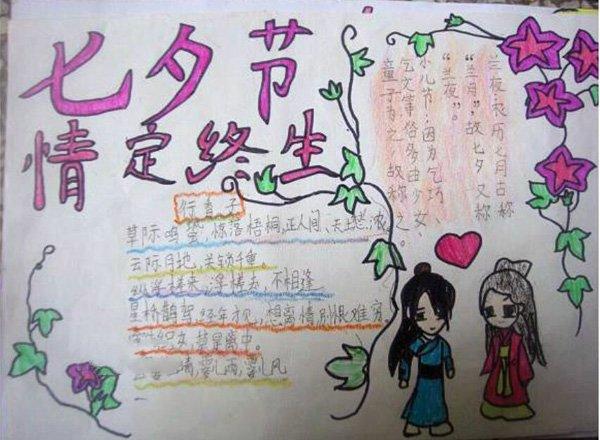 七夕节
情定终生
行香子
草际鸣蛩,惊落梧桐,正人间、天上愁浓
云际月地,关锁千重。
来,浮槎去,不相逢
星桥鹊驾,经年才见,想离情别恨难穷。
织女,离中。
晴,霎儿雨,霎儿风
兰夜:农历七月古称
“兰月”,故七夕又称
“兰夜”。
小儿节:因为乞巧、
乞文等俗多由少女、
童子为之,故称之。